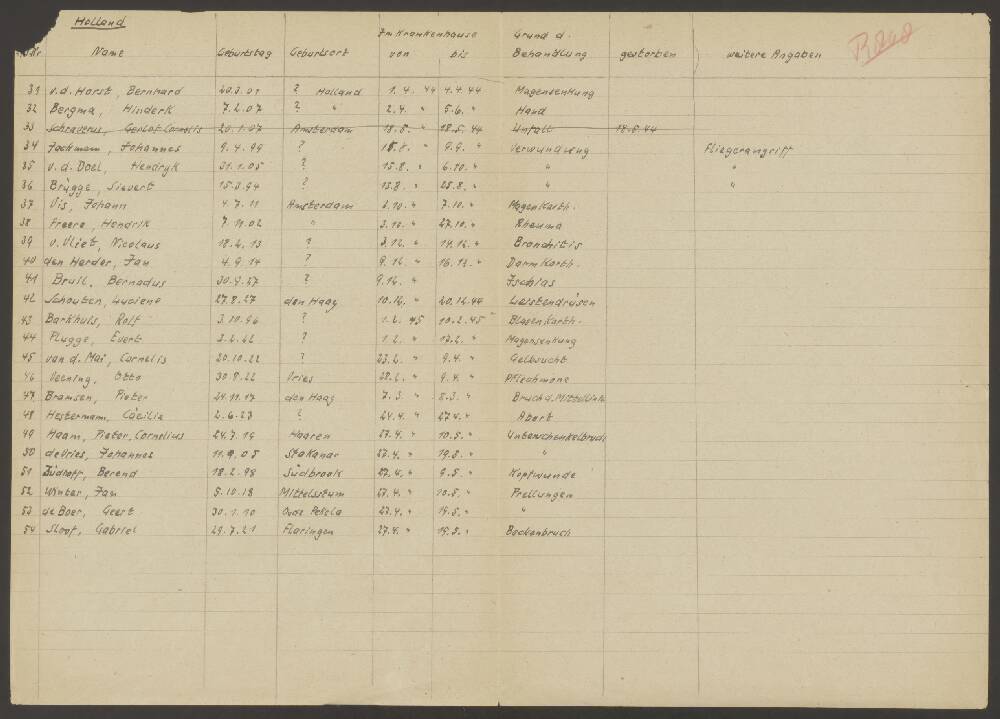 Holland
Im Krankenhause Grund d.
Name Geburtstag Geburtsort von bis Behandlung gestorben weitere Angaben
31 v.d. Horst, Bernhard 20.3.01 ? Holland 1.4. 44 4.4.44 Magensenkung
32 Bergma, Hinderk 7.2.07 ? " 2.4. " 5.6. " Hand
33 Gerlof-Cornelis 20.1.07 Amsterdam 18.5. " 18.5.44 Unfall 18.5.44
34 Jackmann, Johannes 9.4.99 ? 15.8. " 9.9. " Verwundung Fliegerangriff
35 v.d. Doel, Hendryk 31.1.05 ? 15.8. " 6.10. " " "
36 Brügge, Sievert 15.3.94 ? 15.8. " 28.8. " " "
37 Vis, Johann 4.7.11 Amsterdam 2.10. " 7.10. " Magenkarth.
38 Freere, Hendrik 7.11.02 " 3.10. " 27.10. " Rheuma
39 v. Vliet, Nicolaus 18.2.13 ? 3.12. " 14.12. " Bronchitis
40 den Herder, Jan 4.9.14 ? 9.12. " 16.12. " Darmkarth.
41 Bruil, Bernadus 30.9.27 ? 9.12. " Ischias
42 Schouten, Luciene 27.8.27 den Haag 10.12. " 20.12.44 Leistendrüsen
43 Barkhuis, Rolf 3.10.96 ? 1.2. 45 10.2.45 Blasenkarth.
44 Plugge, Evert 3.2.22 ? 1.2. " 17.2. " Magensenkung
45 van d. Mai, Cornelis 20.10.22 ? 23.2. " 9.4. " Gelbsucht
46 Oening, Otto 30.8.22 Vries 28.2. " 9.4. " Pflechmone
47 Bramsen, Pieter 24.11.17 den Haag 7.3. " 8.3. " Bruch d. Mittel
48 Hestermann, Cäcilia 2.6.23 ? 24.4. " 27.4. " Abort
49 Haam, Pieter, Cornelius 24.7.19 Haaren 27.4. " 10.5. " Unterschenkelbruch
50 de Vries, Johannes 11.9.05 Stakanar 27.4. " 19.8. " "
51 Zudhoff, Berend 18.2.98 Südbrook 27.4. " 9.5. " Kopfwunde
52 Winter, Jan 5.10.18 Mittelsstum 27.4. " 10.5. " Prellungen
53 de Boer, Geert 30.1.10 Oude Pekela 27.4. " 19.5. " "
54 Sloof, Gabriel 29.7.21 Flaringen 27.4. " 19.5. " Beckenbruch